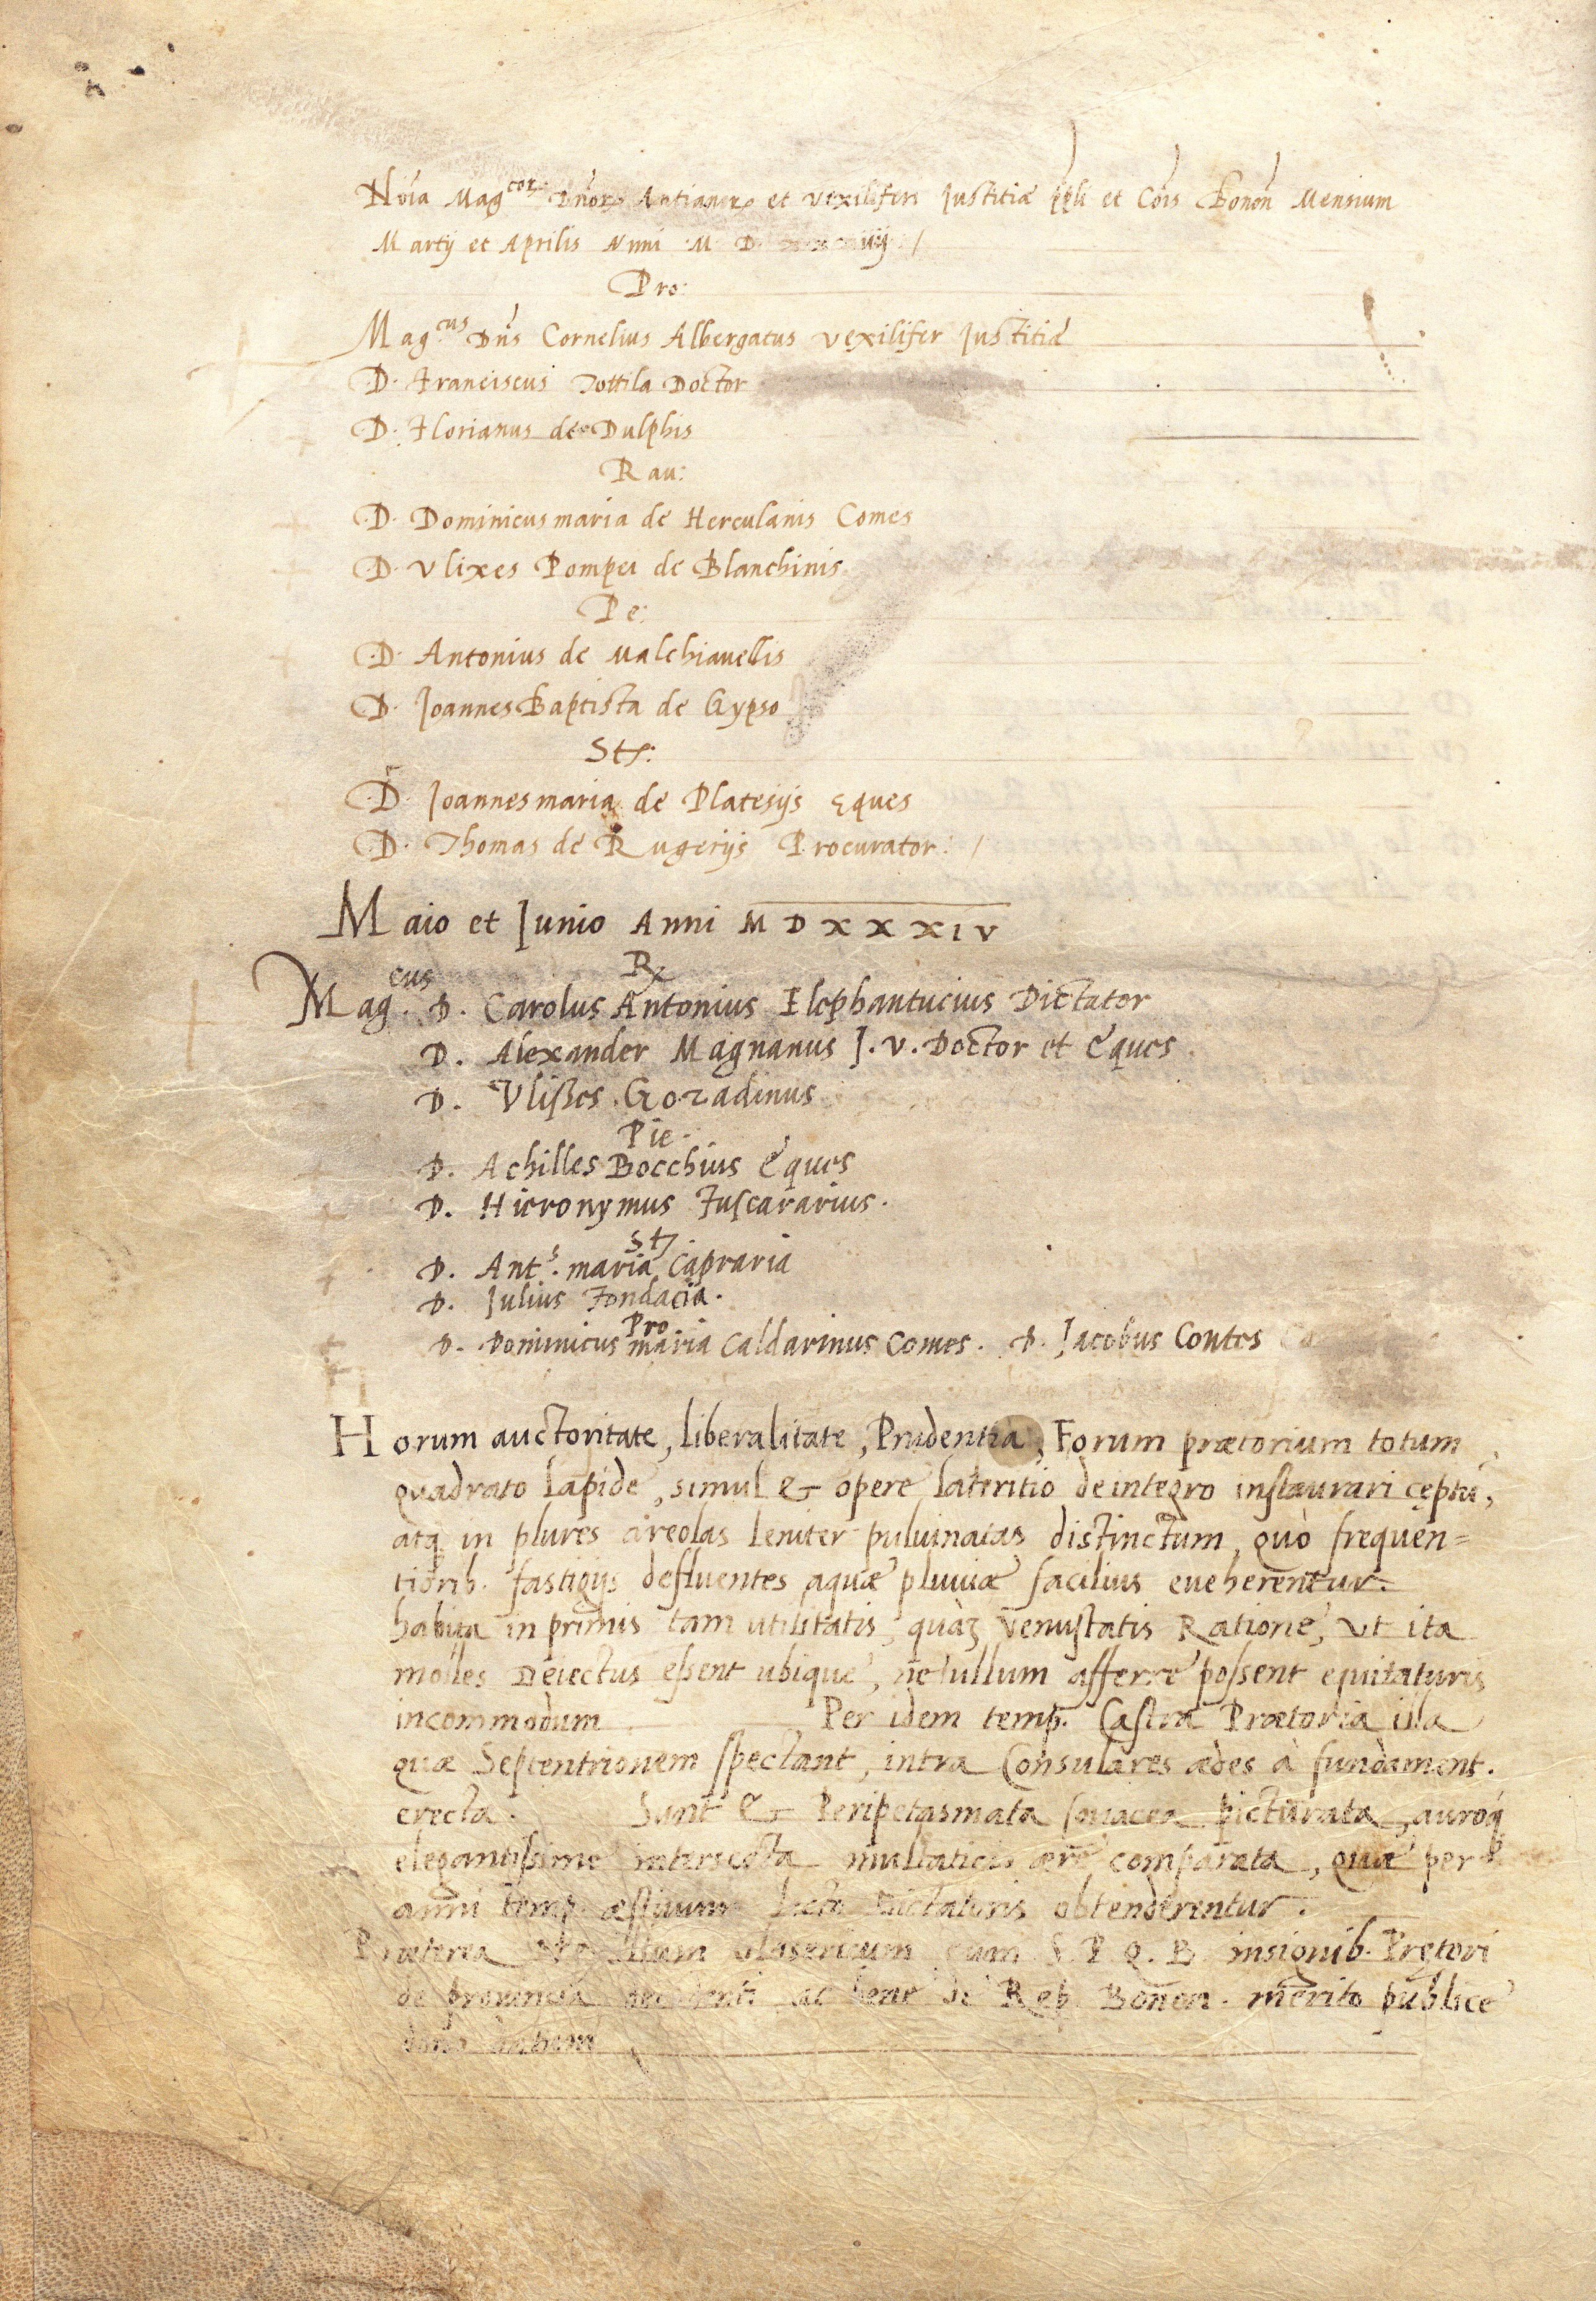 Nōīa Mag.cor Dnōr Antianor et vexiliferi Justitiæ ppli et Cōis Bonōn Mensium
Martij et Aprilis Anni M D
Pro:
Mag.cus Dn̄s Cornelius Albergatus vexilifer Justitiæ
D. Franciscus Tottila Doctor
D. Florianus de Dulphis
Rau:
D. Dominicusmaria de Herculanis Comes
D. Vlixes Pompei de Blanchinis
Pe:
D. Antonius de Malchiauellis
D. JoannesBaptista de Gypso
Ste:
D. Joannesmaria de Platesijs Eques
D. Thomas de Rugerijs Procurator: /
Maio et Junio Anni M D X X X I V
R
Mag.cus D. Carolus Antonius Elephantucius Dictator
D. Alexander Magnanus J. V. Doctor et Eques.
D. Vlisses Gozadinus
Pie.
D. Achilles Bocchius Eques
D. Hieronymus Fuscararius.
St
D. Ant.s maria Capraria
D. Julius Fondacia.
Pro.
D. Dominicus maria Caldarinus Comes. D. Jacobus Contes
Horum auctoritate, liberalitate, Prudentia, Forum prætorium totum
quadrato lapide, simul & opere lateritio de integro instaurari cęptū,
atq in plures areolas leniter puluinatas distinctum, quò frequen=
tiorib. fastigijs defluentes aquæ pluuiæ facilius eueherentur.
habita in primis tam utilitatis, quàꝫ venustatis Ratione, ut ita
molles Deiectus essent ubique, ne ullum afferre possent equitaturis
incommodum Per idem temp. Castra Prætoria illa
quæ Septentrionem spectant, intra Consulares ædes à fundament.
erecta. Sunt & Peripetasmata picturata, auroq
elegantissime intersecta multaticio ære comparata, quæ per
anni temp. æstiuum Dictatoris obtenderentur.
Præterea cum S. P. Q. B. insignib. Prętori
de prouincia ac bene de Rep. Bonon. merito publice
dono